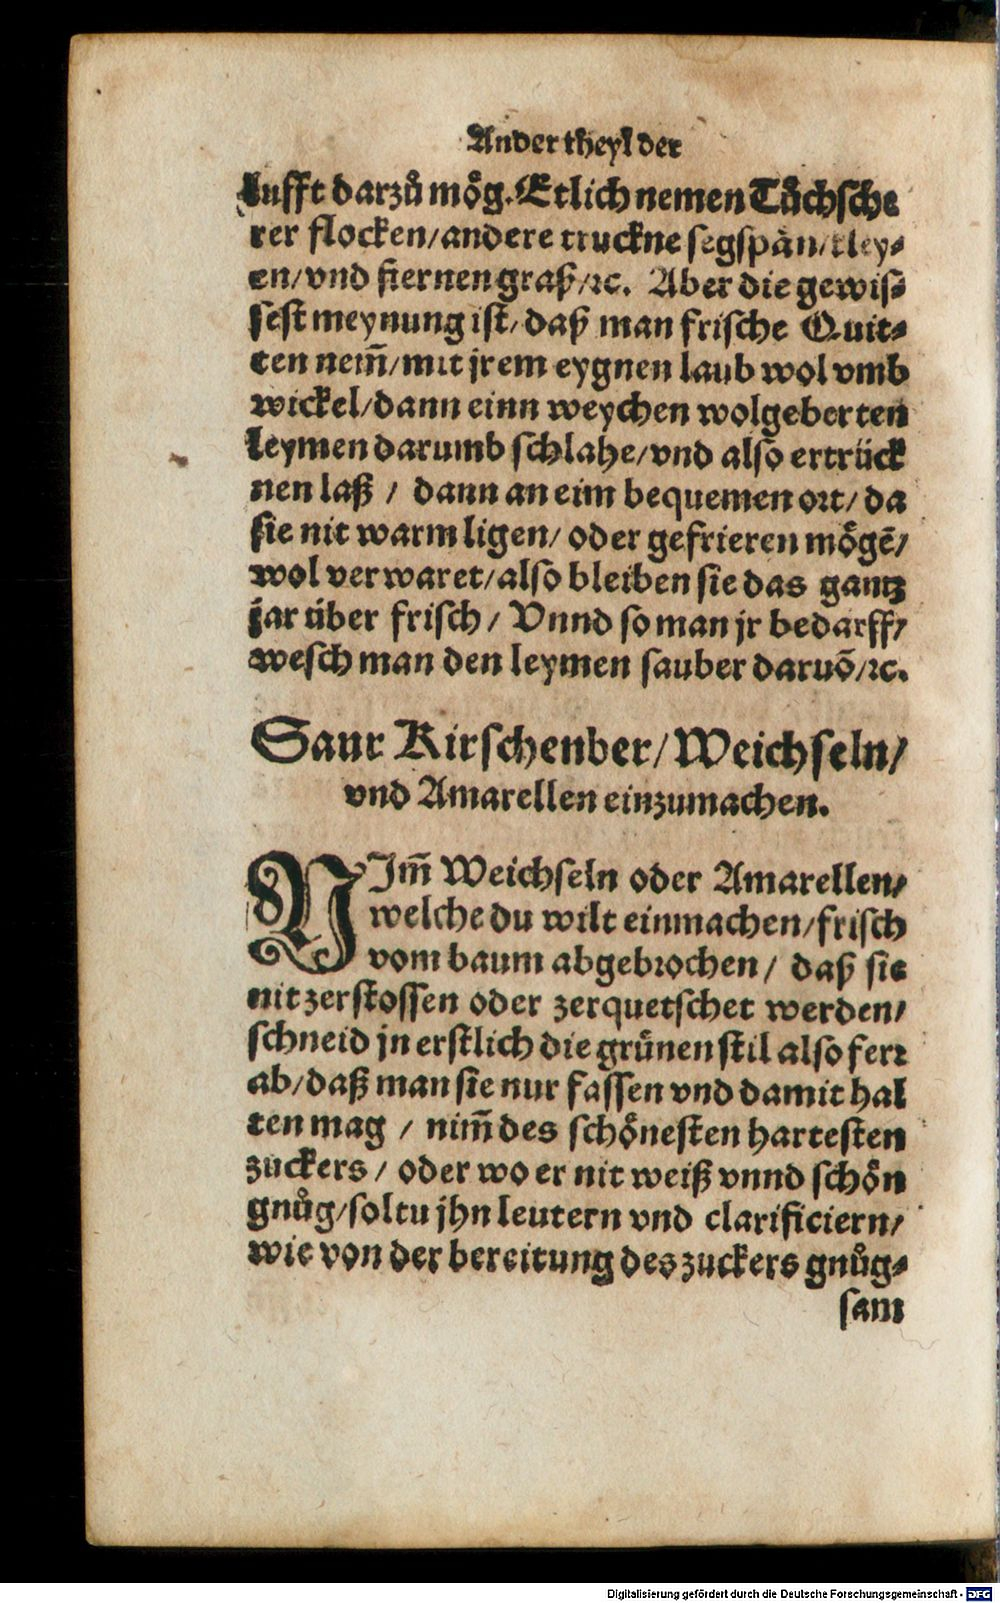 Ander theyl der
lufft darzů mög. Etlich nemen Tůchsche
rer flocken/andere truckne segspän/kley⸗
en/vnd fiernen graß/ꝛc. Aber die gewis⸗
sest meynung ist/daß man frische Quit⸗
ten nem̄/mit jrem eygnen laub wol vmb
wickel/dann einn weychen wolgeberten
leymen darumb schlahe/vnd also ertrück
nen laß / dann an eim bequemen ort/ da
sie nit warm ligen/ oder gefrieren mögē/
wol verwaret/also bleiben sie das gantz
jar über frisch / Vnnd so man jr bedarff/
wesch man den leymen sauber daruō/ꝛc.
Saur Kirschenber/Weichseln/
vnd Amarellen einzumachen.
NIm̄ Weichseln oder Amarellen/
welche du wilt einmachen/frisch
vom baum abgebrochen / daß sie
nit zerstossen oder zerquetschet werden/
schneid jn erstlich die grünen stil also ferr
ab/daß man sie nur fassen vnd damit hal
ten mag / nim̄ des schönesten hartesten
zuckers / oder wo er nit weiß vnnd schön
gnůg/soltu jhn leutern vnd clarificiern/
wie von der bereitung des zuckers gnůg⸗
sam
Digitalisierung gefördert durch die Deutsche Forschungsgemeinschaft - DFG